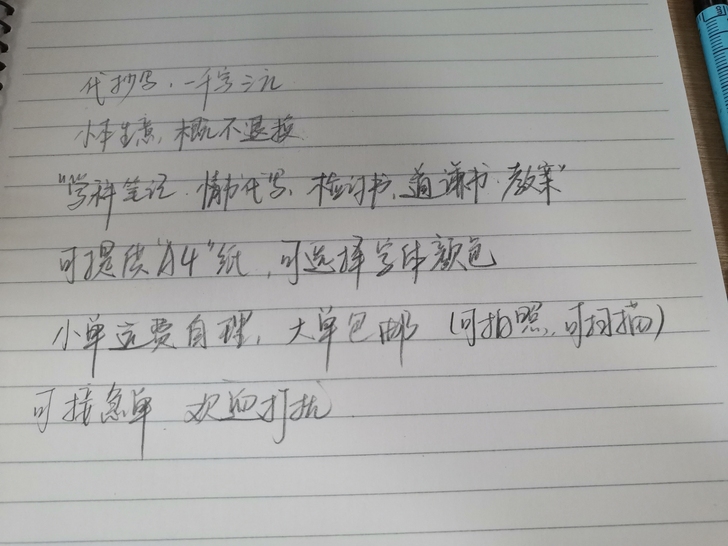 代抄写，一千字三元
小本生意，概不退换
“学科笔记、情书代写、检讨书、道谦书、教案”
可提供“A4”纸，可选择字体颜色
小单运费自理，大单包邮（可拍照，可扫描）
可接急单 欢迎打扰